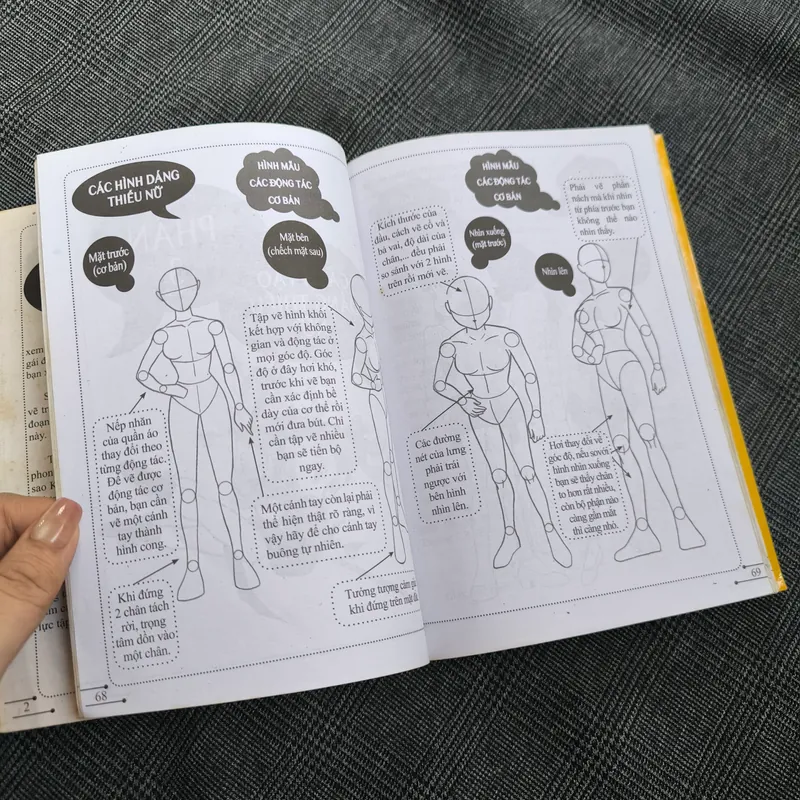 CÁC HÌNH DÁNG
THIẾU NỮ
HÌNH MẪU
CÁC ĐỘNG TÁC
CƠ BẢN
Mặt trước
(cơ bản)
Mặt bên
(chếch mặt sau)
Tập vẽ hình khối
kết hợp với không
gian và động tác ở
mọi góc độ. Góc
độ ở đây hơi khó,
trước khi vẽ bạn
cần xác định bề
dày của cơ thể rồi
mới đưa bút. Chỉ
cần tập vẽ nhiều
bạn sẽ tiến bộ
ngay.
Nếp nhăn
của quần áo
thay đổi theo
từng động tác.
Để vẽ được
động tác cơ
bản, bạn cần
vẽ một cánh
tay thành
hình cong.
Một cánh tay còn lại phải
thể hiện thật rõ ràng, vì
vậy hãy để cho cánh tay
buông tự nhiên.
Khi đứng
2 chân tách
rời, trọng
tâm dồn vào
một chân.
Tưởng tượng cảm
khi đứng trên mặt
68
HÌNH MẪU
CÁC ĐỘNG TÁC
CƠ BẢN
Kích thước của
đầu, cách vẽ cổ và
bả vai, độ dài của
chân... đều phải
so sánh với 2 hình
trên rồi mới vẽ.
Nhìn xuống
(mặt trước)
Nhìn lên
Phải vẽ phần
nách mà khi nhìn
từ phía trước bạn
không thể nào
nhìn thấy.
Các đường
nét của lưng
phải trái
ngược với
bên hình
nhìn lên.
Hơi thay đổi về
góc độ, nếu sovới
hình nhìn xuống
bạn sẽ thấy chân
to hơn rất nhiều,
còn bộ phận nào
càng gần mắt
thì càng nhỏ.
69
xem
gái
bạn
vẽ
đoạn
này.
phon
sao
lực tập
2